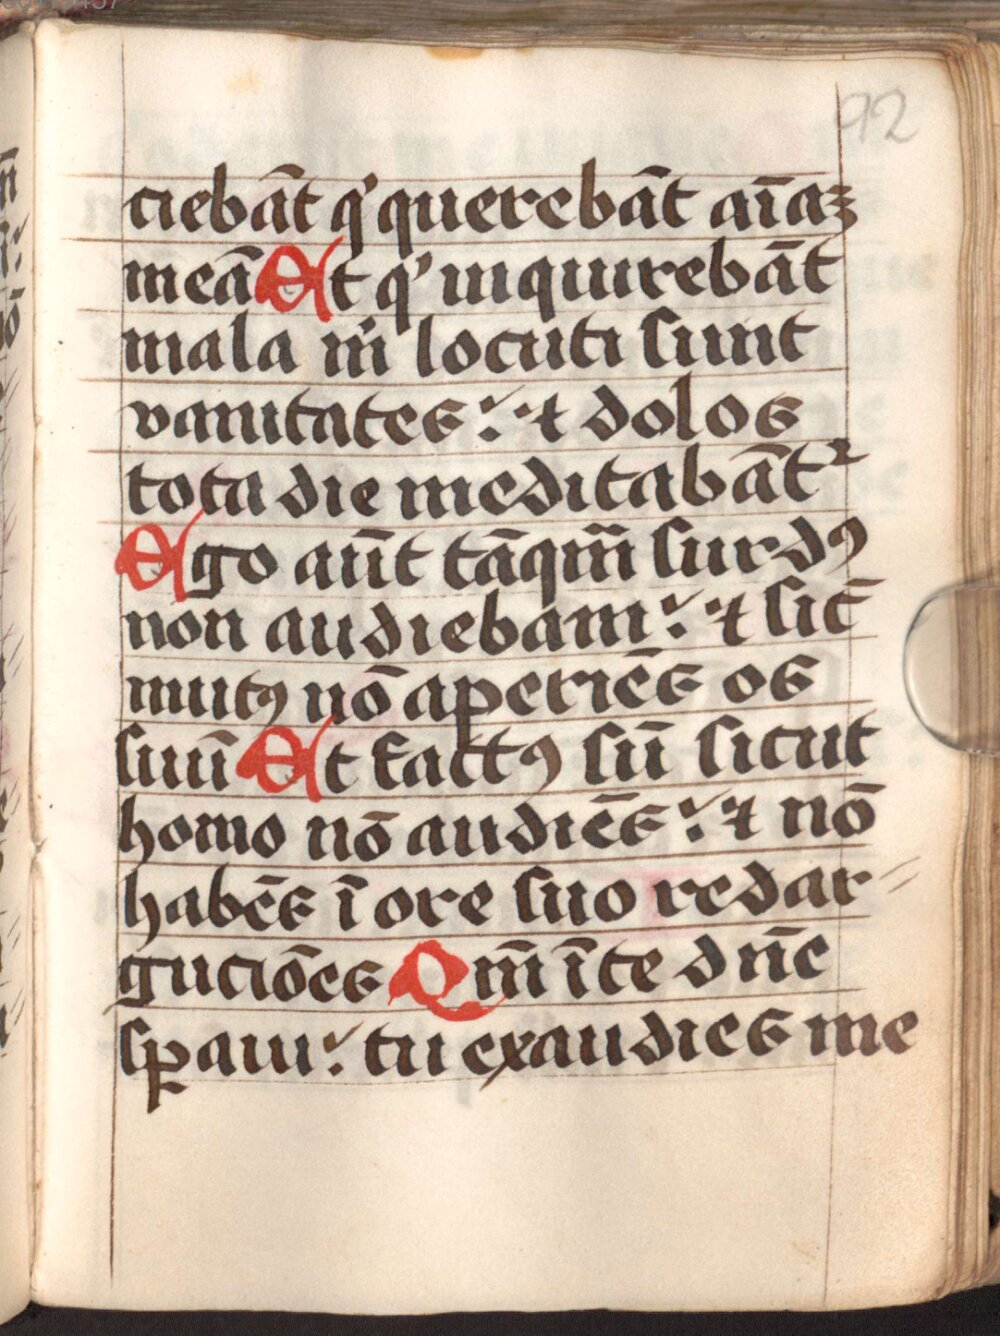 92
ciebāt qͥ querebāt aīaꝫ
meā Et qͥ inquirebāt
mala m̄ locuti sunt
vanitates: ⁊ dolos
tota die meditabātᷣ
Ego aūt tāqm̄ surdꝰ
non audiebam: ⁊ sic̄
mutꝰ nō aperiēs os
suū Et factꝰ sū sicut
homo nō audiēs: ⁊ nō
habēs ī ore suo redar
guciōes Qm̄ ī te dn̄e
sꝑaui: tu exaudies me